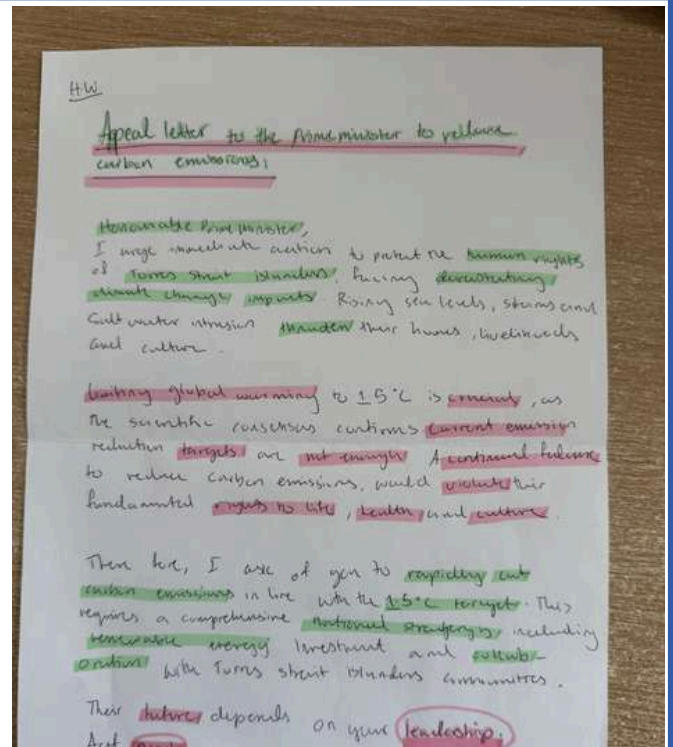 HW
Appeal letter to the Prime minister to reduce
carbon emissions,
Honourable Prime Minister,
I urge immediate action to protect the human rights
of Torres strait islanders, facing devastating
climate change impacts. Rising sea levels, storms and
salt water intrusion threaten their homes, livelihoods
and culture.
Limiting global warming to 1.5°C is crucial, as
the scientific consensus confirms current emission
reduction targets are not enough. A continued failure
to reduce carbon emissions, would violate their
fundamental rights to life, health, and culture.
There fore, I ask of you to rapidly cut
carbon emissions in line with the 1.5°C target. This
requires a comprehensive national strategy, including
renewable energy investment and collab-
oration with Torres strait islanders communities.
Their future depends on your leadership.
Act